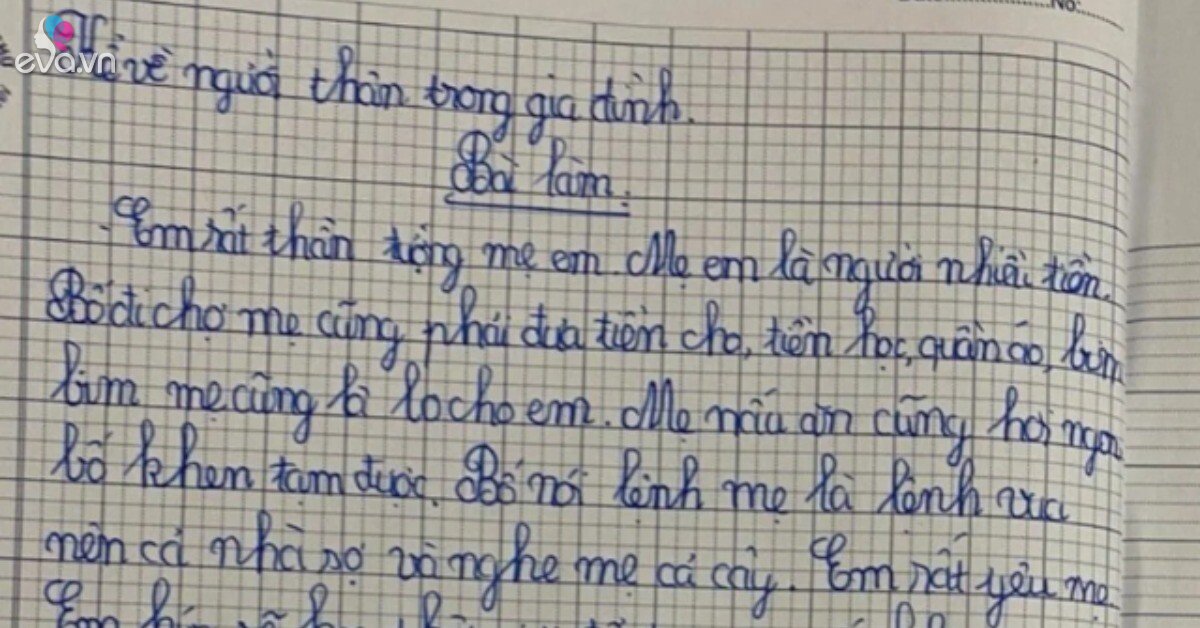 No:
eva.vn
về người thân trong gia đình.
Bài làm.
Em rất thần tượng mẹ em. Mẹ em là người nhiều tiền.
Bố đi chợ mẹ cũng phải đưa tiền cho, tiền học, quần áo, bim
bim mẹ cũng là lo cho em. Mẹ nấu ăn cũng hơi ngon
bố khen tạm được. Bố nói lệnh mẹ là lệnh vua
nên cả nhà sợ và nghe mẹ cả cây. Em rất yêu mẹ.
Em